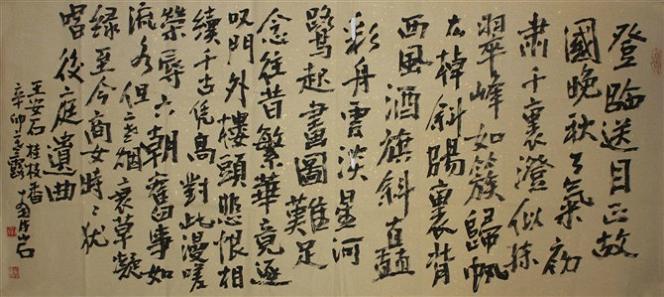 登臨送目正故
國晚秋天氣初
肅千裏澄似練
翠峰如簇歸帆
去棹斜陽裏背
西風酒旗斜矗
彩舟雲淡星河
鷺起畫圖難足
念往昔繁華竞逐
叹門外樓頭悲恨相
續千古凭高對此漫嗟
榮辱六朝舊事如
流水但寒烟衰草凝
綠至今商女時々猶
唱後庭遺曲
王安石桂枝香
辛卯寒露